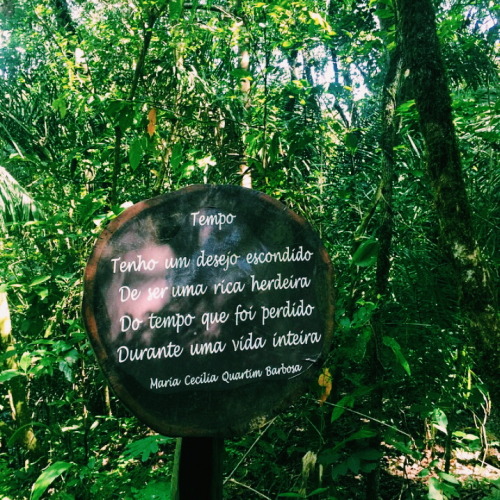 Tempo
Tenho um desejo escondido
De ser uma rica herdeira
Do tempo que foi perdido
Durante uma vida inteira
Maria Cecilia Quartim Barbosa